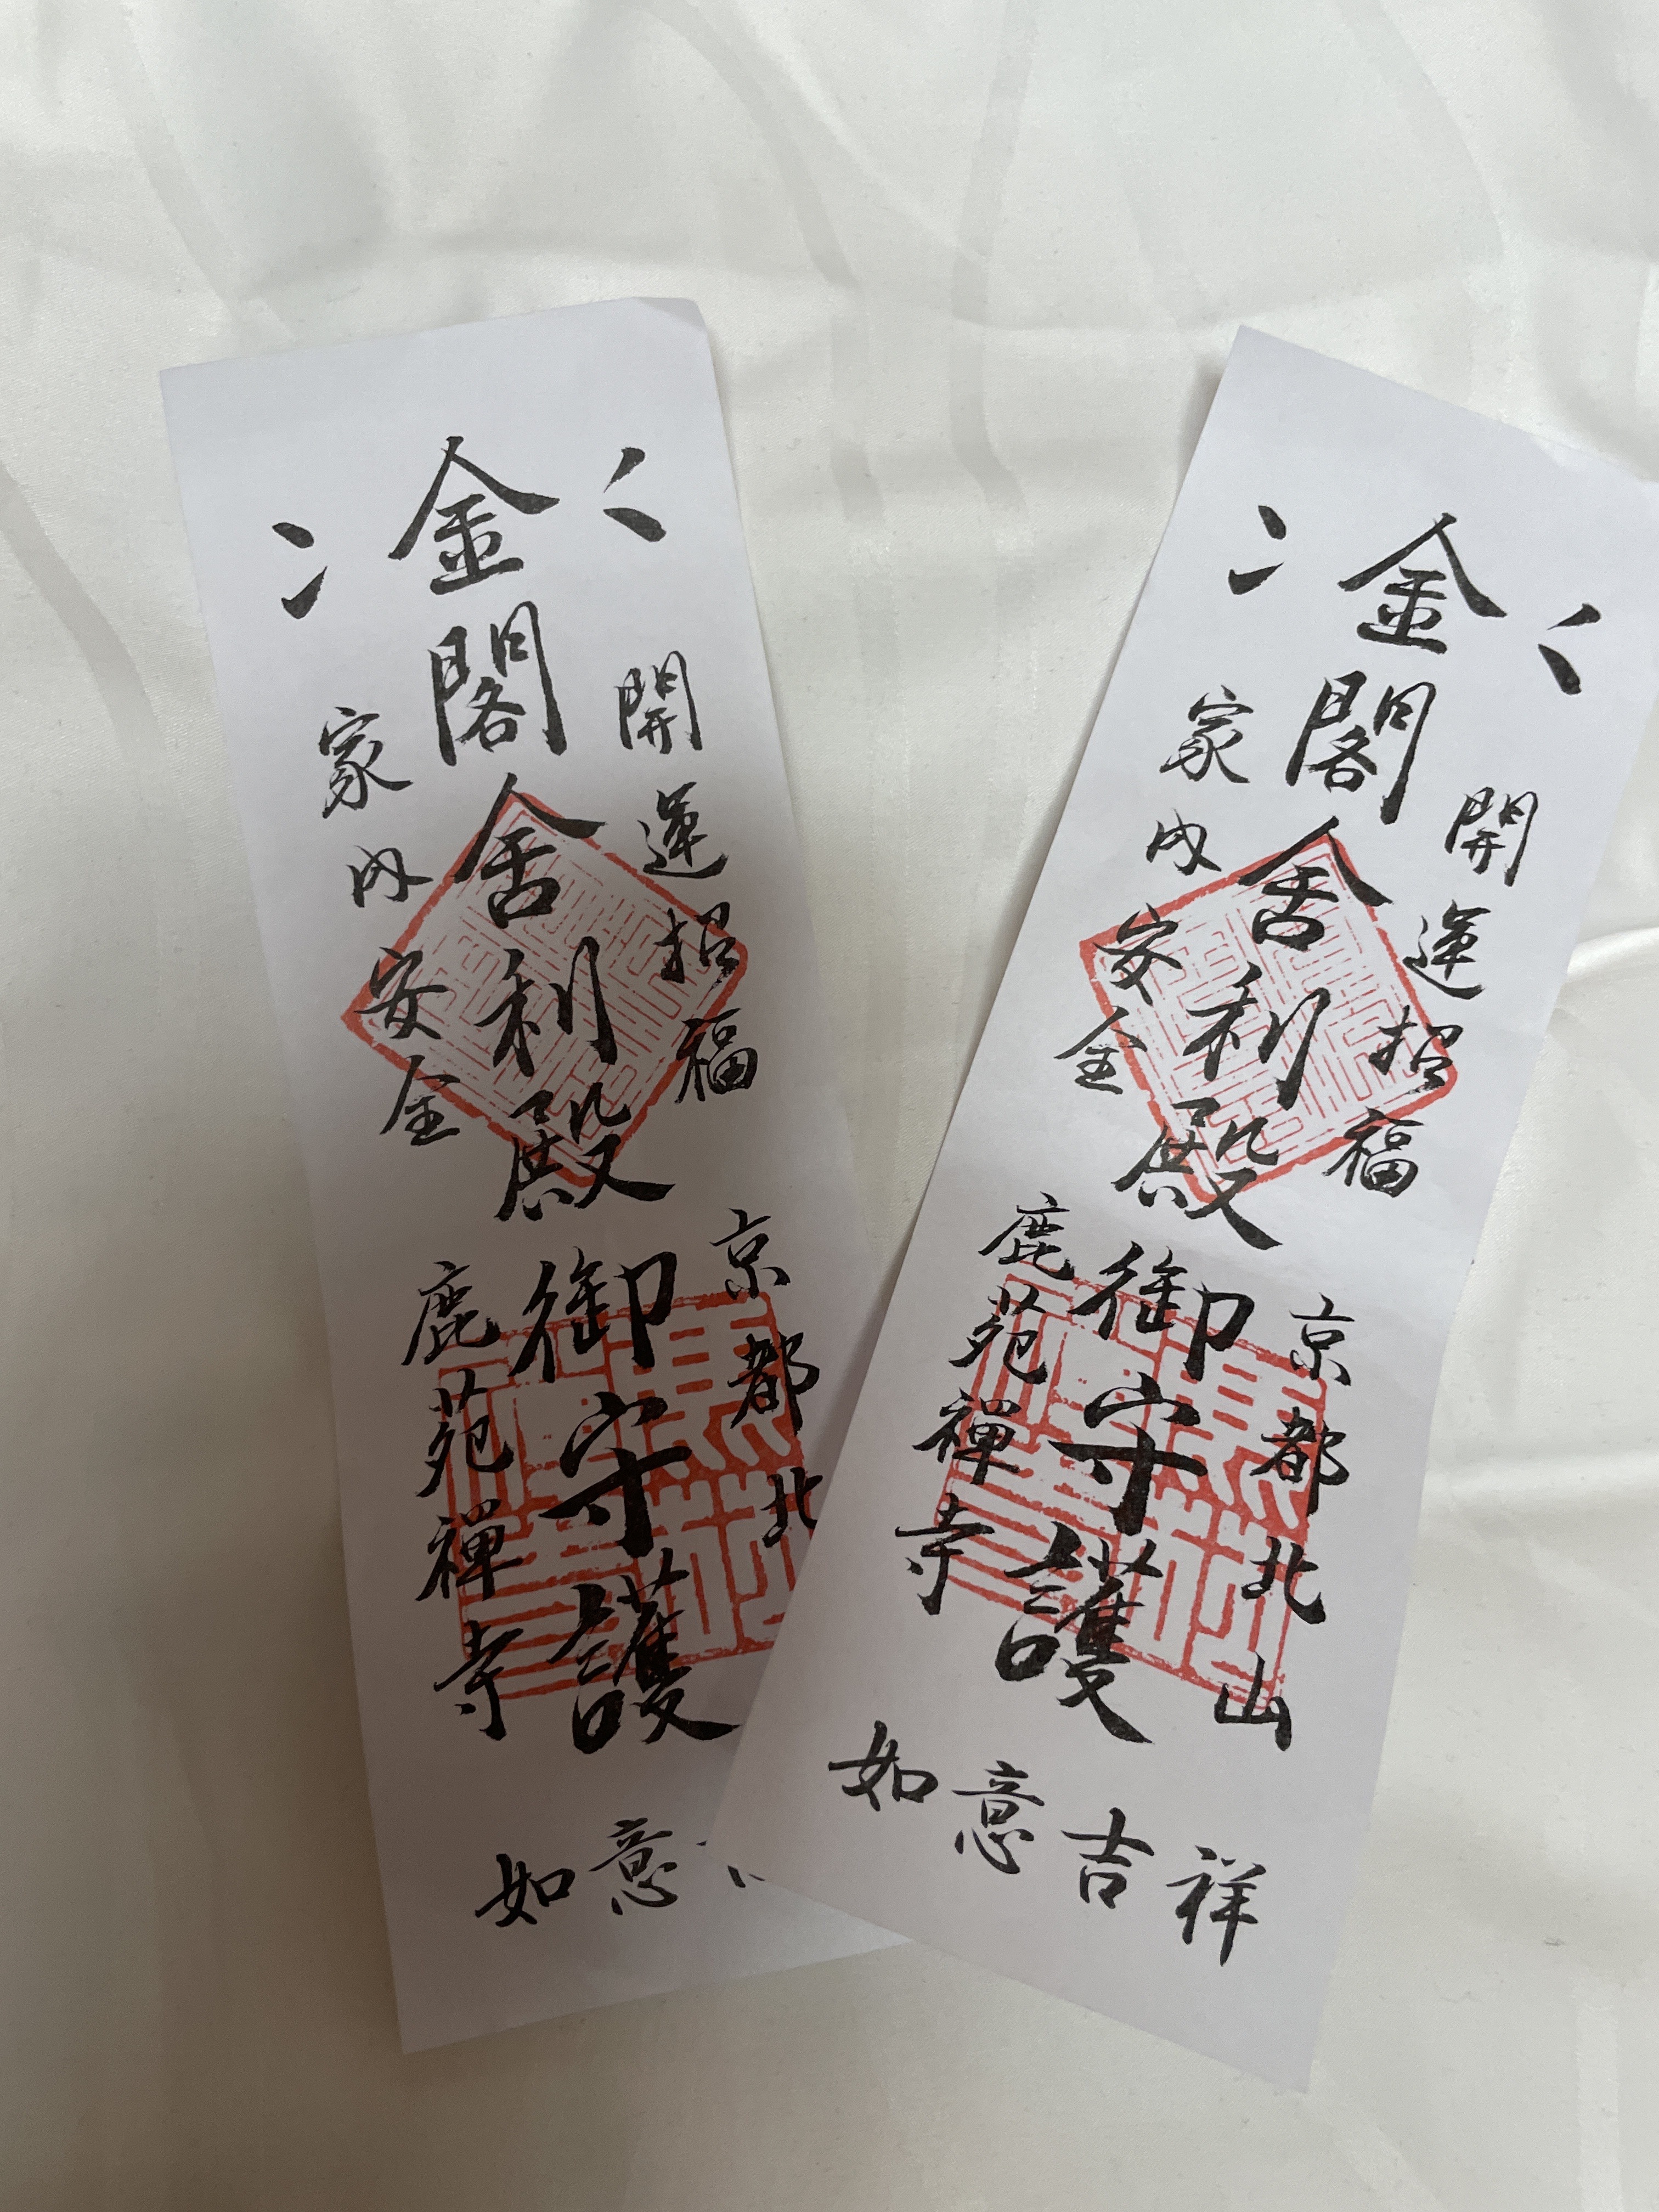 金閣舎利殿御守護
開運招福
家内安全
京都北
鹿苑禅寺
如意
金閣舎利殿御守護
開運招福
家内安全
京都北山
鹿苑禅寺
如意吉祥